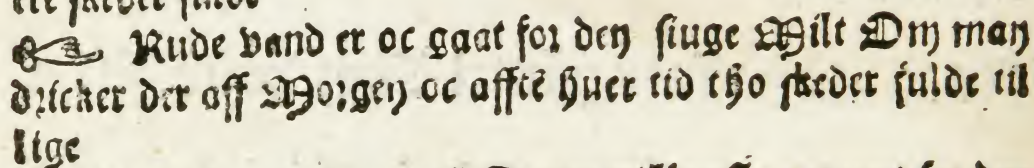 ☞ Rude vand er oc gaat for den siuge Milt Om man
dricker der aff Morgen oc affte huer tid tho skeder fulde til
lige